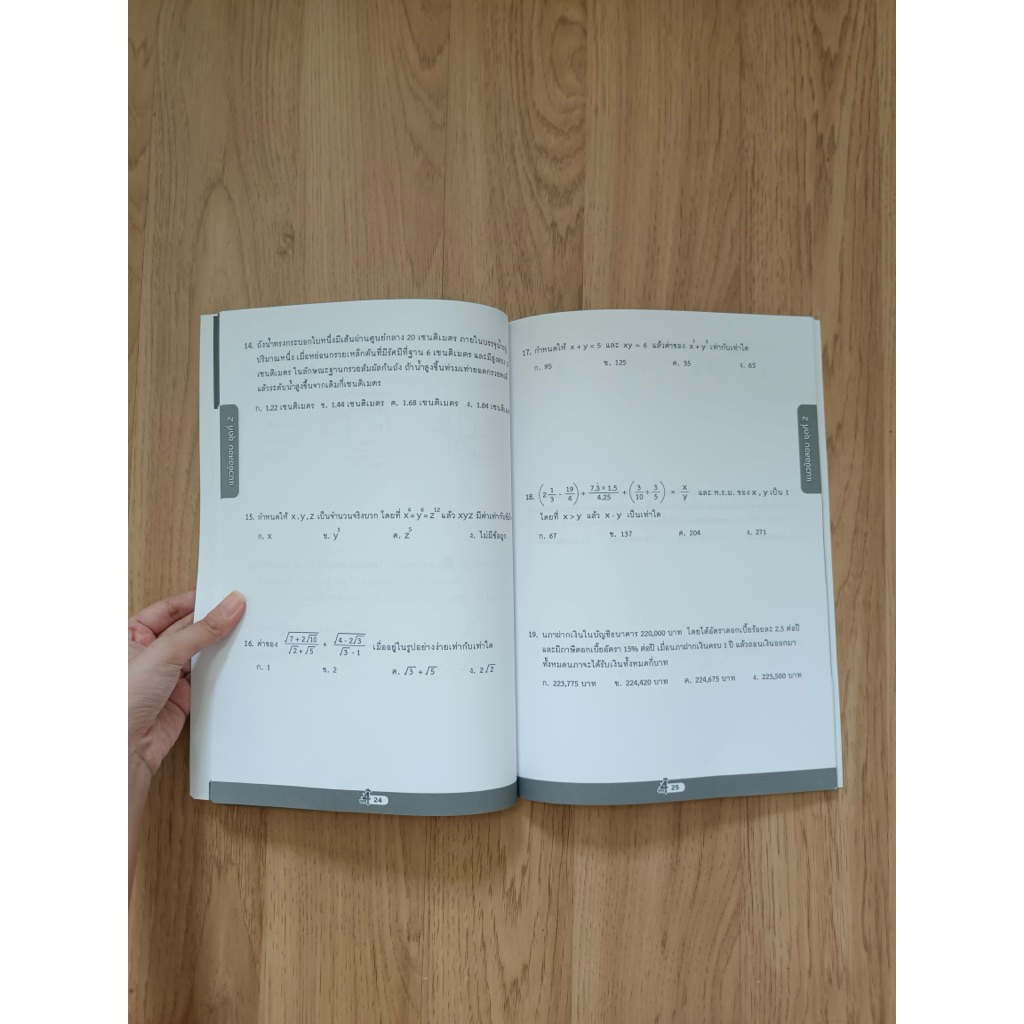 แนวข้อสอบ ชุดที่ 2
14. ถังน้ำทรงกระบอกใบหนึ่งมีเส้นผ่านศูนย์กลาง 20 เซนติเมตร ภายในบรรจุน้ำอยู่
ปริมาณหนึ่ง เมื่อหย่อนกรวยเหล็กตันที่มีรัศมีที่ฐาน 6 เซนติเมตร และมีสูงตรง
เซนติเมตร ในลักษณะฐานกรวยสัมผัสก้นถัง ถ้าน้ำสูงขึ้นท่วมเท่ายอดกรวยพอดี
แล้วระดับน้ำสูงขึ้นจากเดิมกี่เซนติเมตร
ก. 1.22 เซนติเมตร ข. 1.44 เซนติเมตร ค. 1.68 เซนติเมตร ง. 1.84
15. กำหนดให้ x , y , z เป็นจำนวนจริงบวก โดยที่ x⁴ = y⁶ = z¹² แล้ว xyz มีค่าเท่ากับ
ก. x ข. y³ ค. z⁵ ง. ไม่มีข้อถูก
16. ค่าของ √(7 + 2√10)/(√2 + √5) + √(4 - 2√3)/(√3 - 1) เมื่ออยู่ในรูปอย่างง่ายเท่ากับเท่าใด
ก. 1 ข. 2 ค. √3 + √5 ง. 2√2
24
17. กำหนดให้ x + y = 5 และ xy = 6 แล้วค่าของ x³ + y³ เท่ากับเท่าใด
ก. 95 ข. 125 ค. 35 ง. 65
แนวข้อสอบ ชุดที่ 2
18. (2 1/3 - 19/6) + (7.3̇ × 1.5)/4.25 + (3/10 ÷ 3/5) = x/y และ ห.ร.ม. ของ x , y เป็น 1
โดยที่ x > y แล้ว x - y เป็นเท่าใด
ก. 67 ข. 137 ค. 204 ง. 271
19. นภาฝากเงินในบัญชีธนาคาร 220,000 บาท โดยได้อัตราดอกเบี้ยร้อยละ 2.5 ต่อปี
และมีภาษีดอกเบี้ยอัตรา 15% ต่อปี เมื่อนภาฝากเงินครบ 1 ปี แล้วถอนเงินออกมา
ทั้งหมดนภาจะได้รับเงินทั้งหมดกี่บาท
ก. 223,775 บาท ข. 224,420 บาท ค. 224,675 บาท ง. 225,500 บาท
25